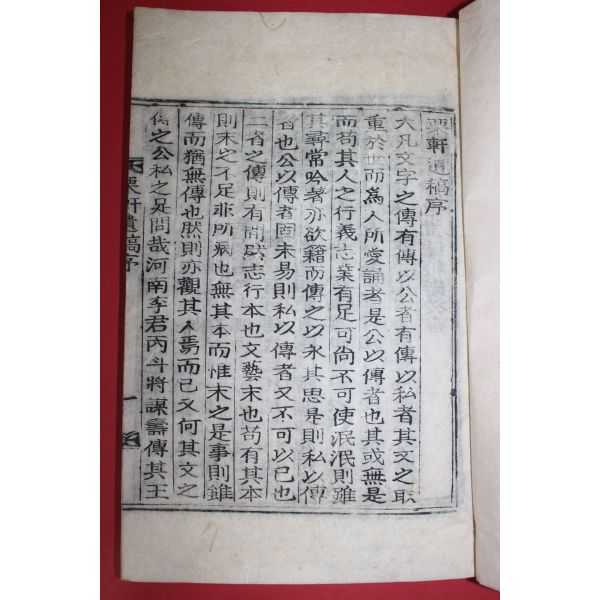 栗軒遺稿序
大凡文字之傳有傳以公者有傳以私者其文之取
重於世而爲人所愛誦者是公以傳者也其或無是
而苟其人之行義志業有足可尙不可使泯泯則雖
其尋常吟著亦欲籍而傳之以永其思是則私以傳
者也公以傳者固未易則私以傳者又不可以已也
二者之傳則有間然志行本也文藝末也苟有其本
則末之不足非所病也無其本而惟末之是事則雖
傳而猶無傳也然則亦觀其人焉而已又何其文之
傳之公私之足問哉河南李君丙斗將謀壽傳其王
栗軒遺稿序
一